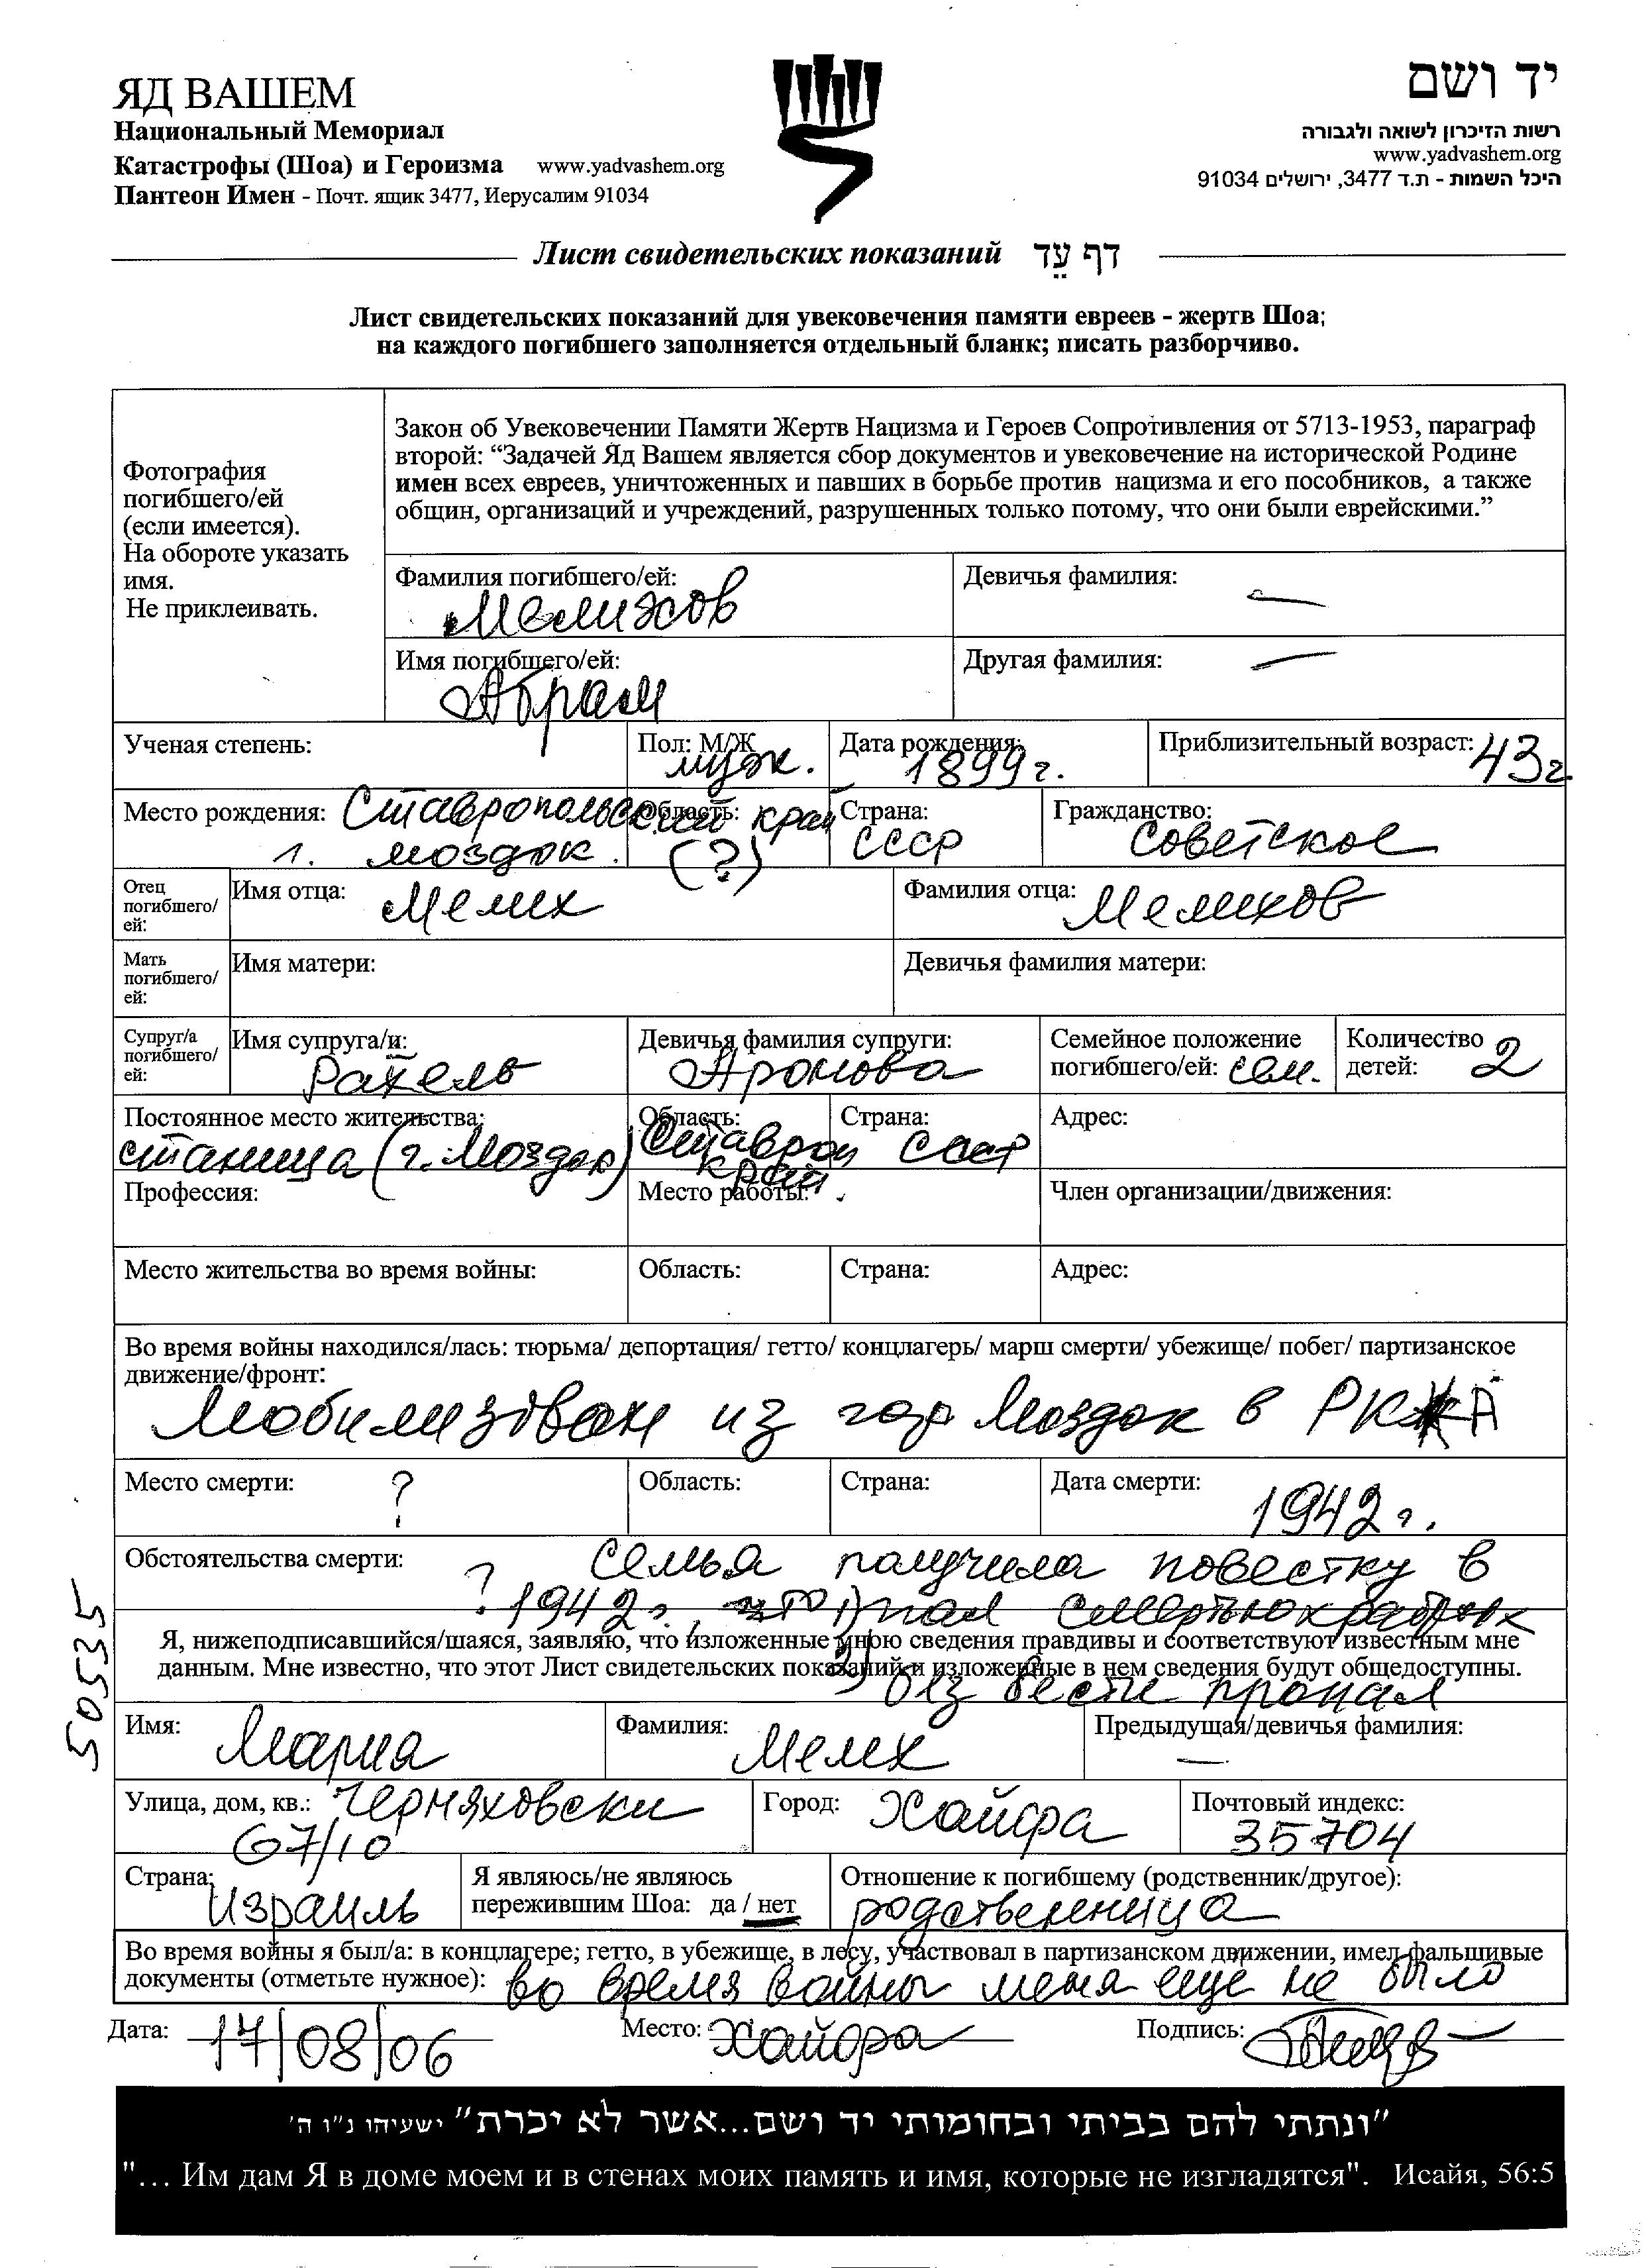 ЯД ВАШЕМ
Национальный Мемориал
Катастрофы (Шоа) и Героизма www.yadvashem.org
Пантеон Имен - Почт. ящик 3477, Иерусалим 91034
יד ושם
רשות הזיכרון לשואה ולגבורה
www.yadvashem.org
היכל השמות - ת.ד 3477, ירושלים 91034
Лист свидетельских показаний דף עֵד
Лист свидетельских показаний для увековечения памяти евреев - жертв Шоа;
на каждого погибшего заполняется отдельный бланк; писать разборчиво.
Фотография
погибшего/ей
(если имеется).
На обороте указать
имя.
Не приклеивать.
Закон об Увековечении Памяти Жертв Нацизма и Героев Сопротивления от 5713-1953, параграф
второй: “Задачей Яд Вашем является сбор документов и увековечение на исторической Родине
имен всех евреев, уничтоженных и павших в борьбе против нацизма и его пособников, а также
общин, организаций и учреждений, разрушенных только потому, что они были еврейскими.”
Фамилия погибшего/ей: Девичья фамилия:
Мелихов —
Имя погибшего/ей: Другая фамилия:
Абрам —
Ученая степень: Пол: М/Ж Дата рождения: Приблизительный возраст: 43г
муж. 1899г.
Место рождения: Ставропольский край Область: Страна: Гражданство:
г. Моздок. (?) СССР советское
Отец
погибшего/
ей:
Имя отца: Мелих Фамилия отца: Мелихов
Мать
погибшего/
ей:
Имя матери: Девичья фамилия матери:
Супруг/а
погибшего/
ей:
Имя супруга/и: Девичья фамилия супруги: Семейное положение Количество
Рахель Аронова погибшего/ей: сем. детей: 2
Постоянное место жительства: Область: Страна: Адрес:
станица (г. Моздок) Ставроп край СССР
Профессия: Место работы: Член организации/движения:
Место жительства во время войны: Область: Страна: Адрес:
Во время войны находился/лась: тюрьма/ депортация/ гетто/ концлагерь/ марш смерти/ убежище/ побег/ партизанское
движение/фронт:
Мобилизован из гор Моздок в РККА
Место смерти: ? Область: Страна: Дата смерти:
1942г.
Обстоятельства смерти: ? Семья получила повестку в
1942г., что 1) пал смертью храбрых
Я, нижеподписавшийся/шаяся, заявляю, что изложенные мною сведения правдивы и соответствуют известным мне
данным. Мне известно, что этот Лист свидетельских показаний и изложенные в нем сведения будут общедоступны.
2) без вести пропал
50535
Имя: Мариа Фамилия: Мелих Предыдущая/девичья фамилия: —
Улица, дом, кв.: Черняховски Город: Хайфа Почтовый индекс:
67/10 35704
Страна: Я являюсь/не являюсь Отношение к погибшему (родственник/другое):
Израиль пережившим Шоа: да / нет родственница
Во время войны я был/а: в концлагере; гетто, в убежище, в лесу, участвовал в партизанском движении, имел фальшивые
документы (отметьте нужное): во время войны меня еще не было
Дата: 17/08/06 Место: Хайфа Подпись:
"ונתתי להם בביתי ובחומותי יד ושם...אשר לא יכרת" ישעיהו נ"ו ה'
"... Им дам Я в доме моем и в стенах моих память и имя, которые не изгладятся". Исайя, 56:5